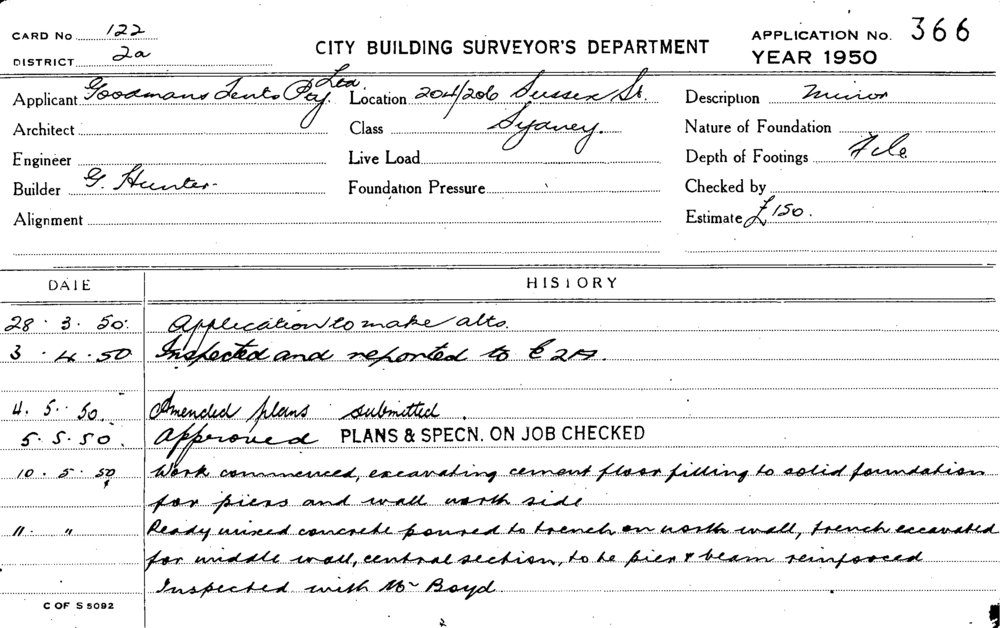 CARD No 122
DISTRICT 2a
CITY BUILDING SURVEYOR'S DEPARTMENT
APPLICATION No. 366
YEAR 1950
Applicant Goodmans Tents Pty. Ltd. Location 204/206 Sussex St. Description Minor
Architect Class Sydney. Nature of Foundation
Engineer Live Load Depth of Footings
Builder G. Hunter. Foundation Pressure Checked by
Alignment Estimate £150.
DATE HISTORY
28.3.50. Application to make alts.
3.4.50 Inspected and reported to
4.5.50. Amended plans submitted.
5.5.50. Approved PLANS & SPECN. ON JOB CHECKED
10.5.50 Work commenced, excavating cement floor filling to solid foundation
for piers and wall north side
11. " Ready mixed concrete poured to trench on north wall, trench excavated
for middle wall, central section, to be pier & beam reinforced
Inspected with Mr Boyd.
C OF S 5092